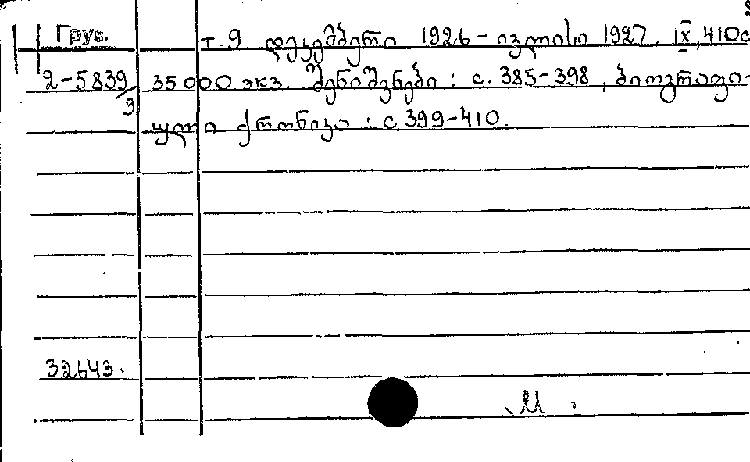 Груз.
т. 9 დეკემბერი 1926 – ივლისი 1927. IX, 410с
2-5839/9 35 000 экз. შენიშვნები : с. 385-398, ბიოგრაფი-
ული ქრონიკა : с. 399-410.
32643.
М.